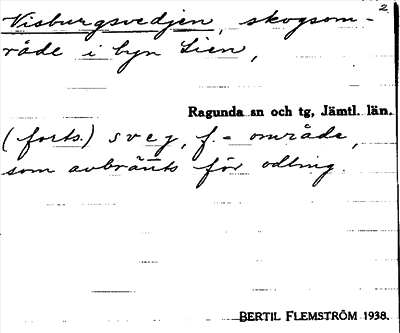 2
Visburgsvedjen, skogsom-
råde i byn Lien,
Ragunda sn och tg, Jämtl. län.
(forts.) sveg, f. = område,
som avbränts för odling.
BERTIL FLEMSTRÖM 1938.